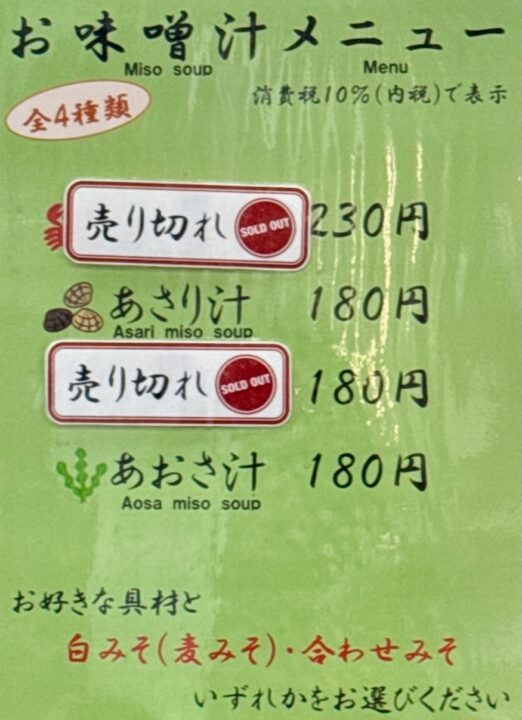 お味噌汁メニュー
Miso soup Menu
消費税10%(内税)で表示
全4種類
売り切れ SOLD OUT 230円
あさり汁 180円
Asari miso soup
売り切れ SOLD OUT 180円
あおさ汁 180円
Aosa miso soup
お好きな具材と
白みそ(麦みそ)・合わせみそ
いずれかをお選びください